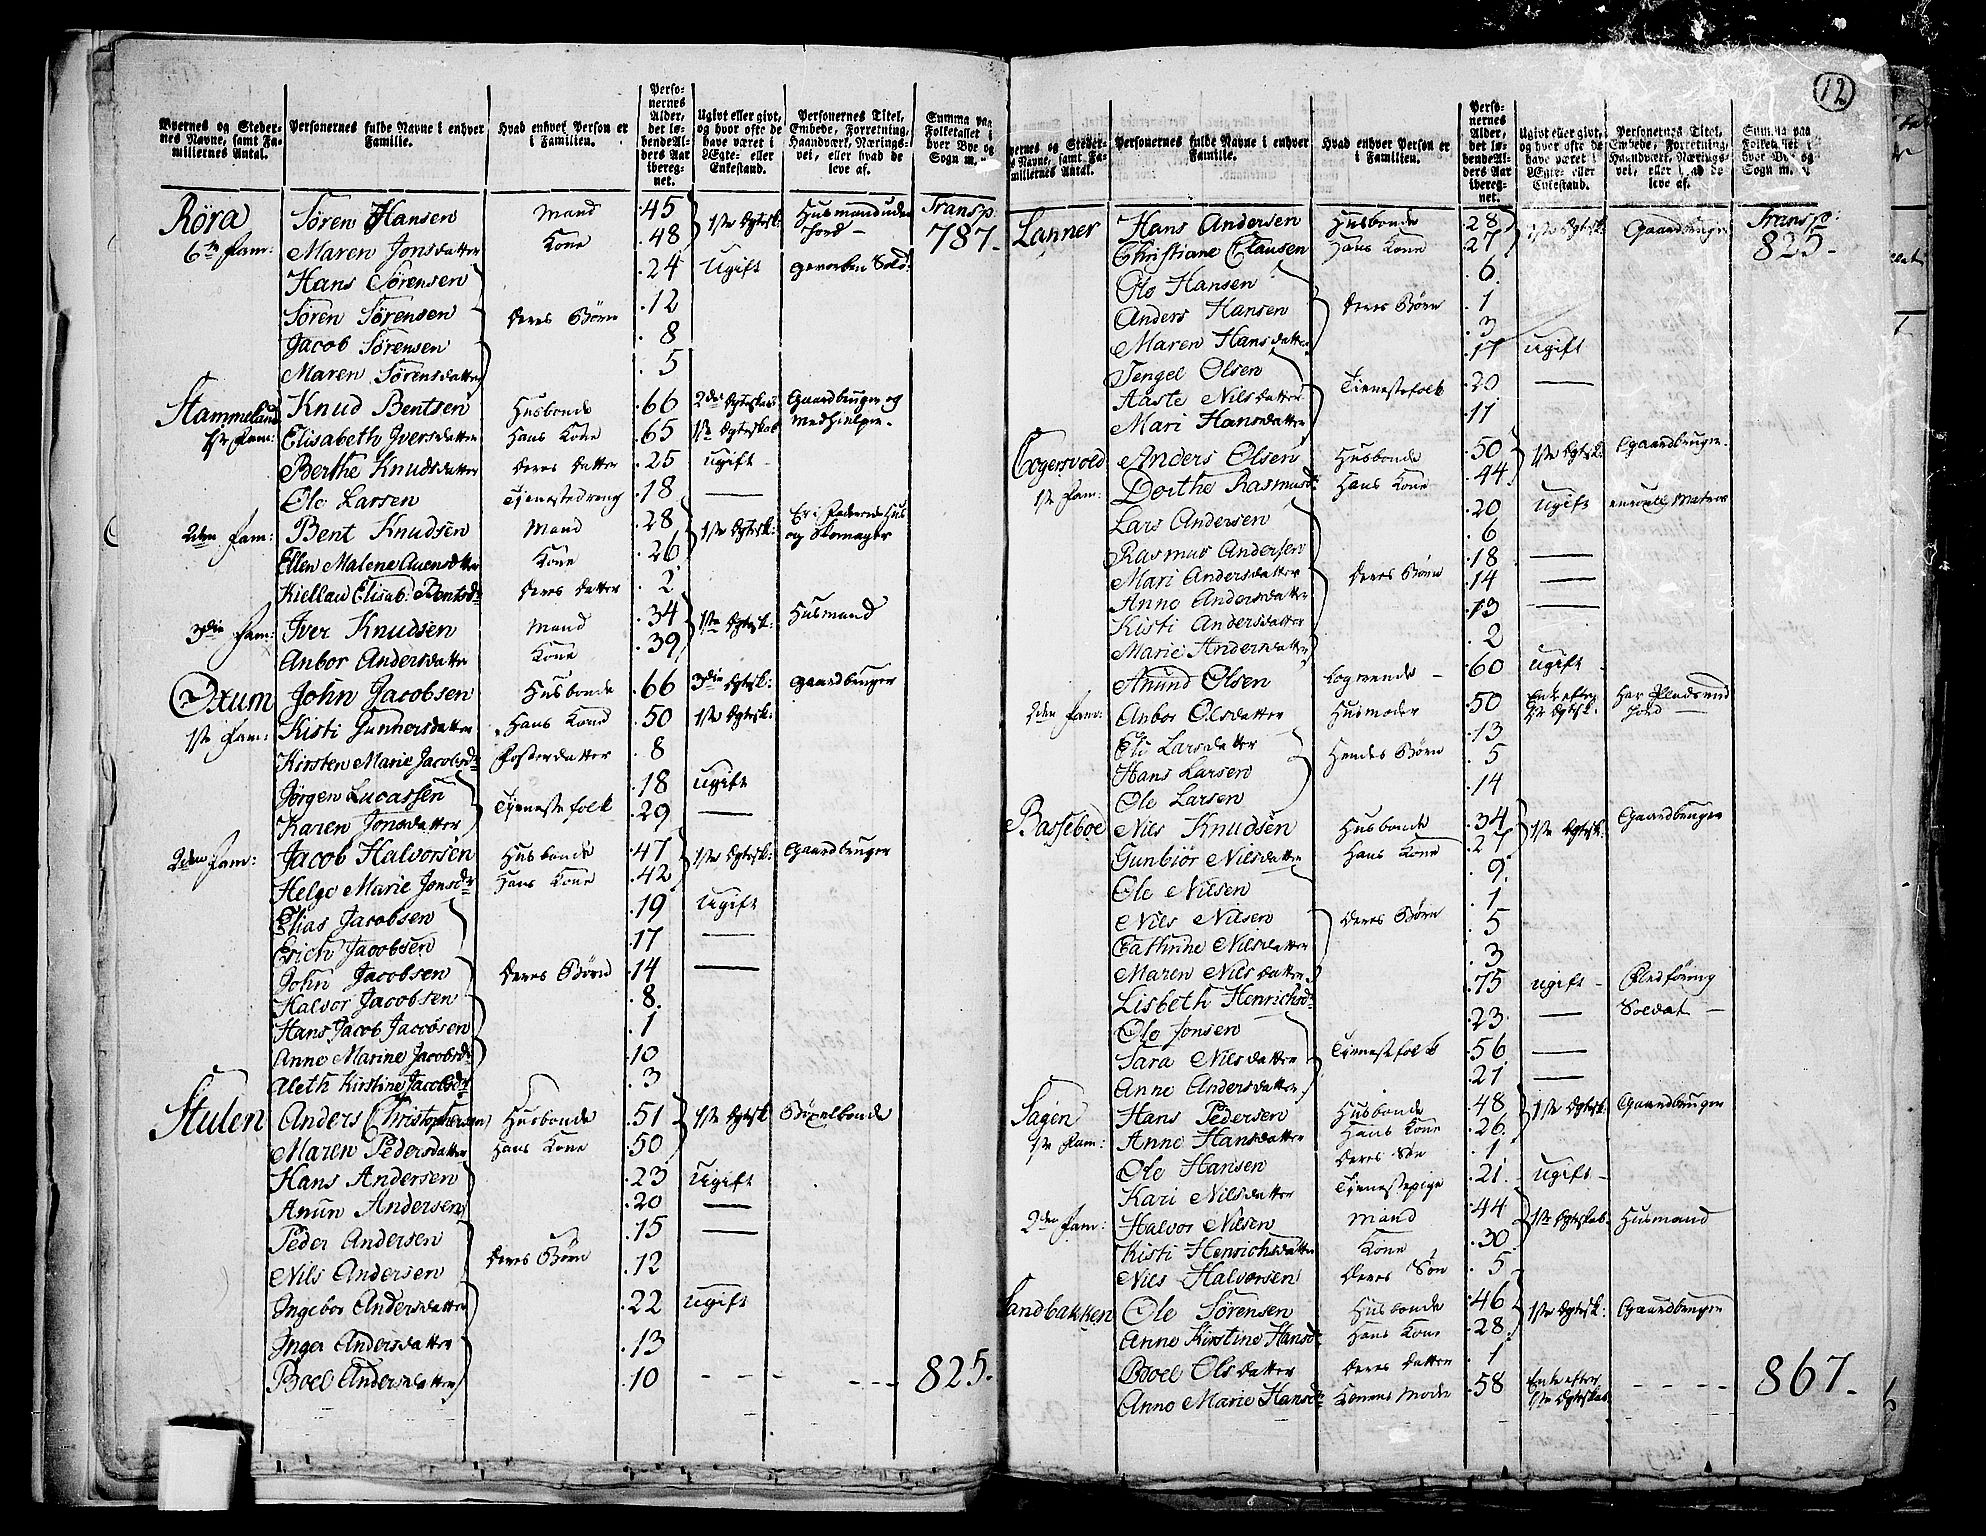 12
Byernes og Stedernes Navne, samt Familiernes Antal. | Personernes fulde Navne i enhver Familie. | Hvad enhver Person er i Familien. | Personernes Alder, det løbende Alders Aar iberegnet. | Ugivt eller givt, og hvor ofte de have været i Ægte- eller Enkestand. | Personernes Titel, Embede, Forretning, Haandværk, Næringsvei, eller hvad de leve af. | Summa paa Folketallet i hver Bye og Sogn
Röra Sören Hansen Mand 45 1ste Egtesk: Husmand uden Jord Transp: 787
6te Fam: Maren Jonsdatter Kone 48
Hans Sörensen 24 Ugift gevorben Sold:
Sören Sörensen deres Börn 12
Jacob Sörensen 8
Maren Sörensdatter 5
Stammeland Knud Bentsen Husbonde 66 2det Egteskab Gaardbruger og Medhielper
1ste Fam: Elisabeth Iversdatter Hans Kone 65 1ste Egteskab
Berthe Knudsdatter deres datter 25 ugift
Ole Larsen Tienestedreng 18 —
2den Fam: Bent Knudsen Mand 28 1ste Egtesk: Er i Faderens Hus og Skomager
Ellen Malena Auensdtter Kone 26
Kiellau Elisab: Bentsdr deres datter 2
3die Fam: Iver Knudsen Mand 34 1ste Egtesk: Husmand
Anbor Andersdatter Kone 39
Oxum John Jacobsen Husbonde 66 3die Egtesk: Gaardbruger
1ste Fam: Kisti Gunnersdatter Hans Kone 50 1ste Egtesk:
Kirsten Marie Jacobsdr Fosterdatter 8
Jörgen Lucassen Tienestefolk 18 ugift
Karen Jonsdatter 29 —
2den Fam: Jacob Halvorsen Husbonde 47 1ste Egtesk: Gaardbruger
Helge Marie Jonsdr Hans Kone 42
Elias Jacobsen 19 Ugift
Erich Jacobsen 17 —
John Jacobsen deres Börn 14 —
Halvor Jacobsen 8
Hans Jacob Jacobsen 1
Anne Marine Jacobsdr 10
Aleth Kirstine Jacobsdr 3
Stulen Anders Christophersen Husbonde 51 1ste Egtesk
Maren Pedersdatter Hans Kone 50
Hans Andersen 23 Ugift
Anun Andersen 20 —
Peder Andersen 15 —
Nils Andersen deres Börn 12
Ingebor Andersdatter 22 Ugift
Inger Andersdatter 13
Boel Andersdatter 10 - - - 825
Byernes og Stedernes Navne, samt Familiernes Antal. | Personernes fulde Navne i enhver Familie. | Hvad enhver Person er i Familien. | Personernes Alder, det løbende Alders Aar iberegnet. | Ugivt eller givt, og hvor ofte de have været i Ægte- eller Enkestand. | Personernes Titel, Embede, Forretning, Haandværk, Næringsvei, eller hvad de leve af. | Summa paa Folketallet i hver Bye og Sogn
Lanner Hans Andersen Husbonde 28 1ste Egtesk: Gaardbruger Transp: 825
Christiane Clausen Hans Kone 27
Ole Hansen 6
Anders Hansen deres Börn 1
Maren Hansdatter 3
Tengel Olsen 17 ugift
Aaste Nilsdatter Tienestefolk 20 —
Mari Hansdatter 11
Cogersvold Anders Olsen Husbonde 50 1ste Egtesk: Gaardbruger
1ste Fam: Dorthe Rasmusdr Hans Kone 44
Lars Andersen 20 Ugift enroull: Matros
Rasmus Andersen 6
Mari Andersdatter deres Börn 18 —
Anne Andersdatter 14 —
Kisti Andersdatter 13 —
Marie Andersdatter 2
Anund Olsen Logerende 60 ugift
2den Fam: Anbor Olsdatter Husmoder 50 Enke efter 1ste Egtesk.
Eli Larsdatter 13
Hans Larsen Hendes Börn 5
Ole Larsen 14
Basseboe Nils Knudsen Husbonde 34 1ste Egtesk: Gaardbruger
Gunbiör Nilsdatter Hans Kone 27
Ole Nilsen 9
Nils Nilsen deres Börn 1
Cathrine Nilsdatter 5
Maren Nilsdatter 3
Lisbeth Henrichsdr 75 ugift
Ole Jonsen 23 — Soldat
Sara Nilsdatter Tienestefolk 56 —
Anne Andersdatter 21 —
Sagen Hans Pedersen Husbonde 48 1ste Egtesk: Gaardbruger
1ste Fam: Anne Hansdatter Hans Kone 26
Ole Hansen deres Sön 1
Kari Nilsdatter Tienestepige 21 ugift
2den Fam: Halvor Nilsen Mand 44 1ste Egteskab Husmand
Kisti Henrichsdatter Kone 30
Nils Halvorsen deres Sön 5
Sandbakken Ole Sörensen Husbonde 46 1ste Egtesk: Gaardbruger
Anne Kirstine Hansdr Hans Kone 28
Boel Olsdatter deres datter 1
Anne Marie Hansdr Konens Moder 58 Enke efter 1ste Egteskab - - - - 867